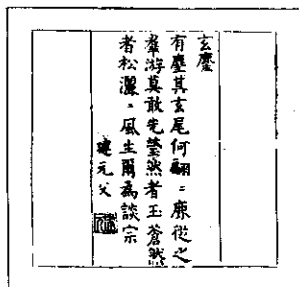 玄麈
有麈其玄尾何翩〻麋從之
羣游莫敢先瑩然者玉蒼然
者松灑〻風生爾為談宗
建元父